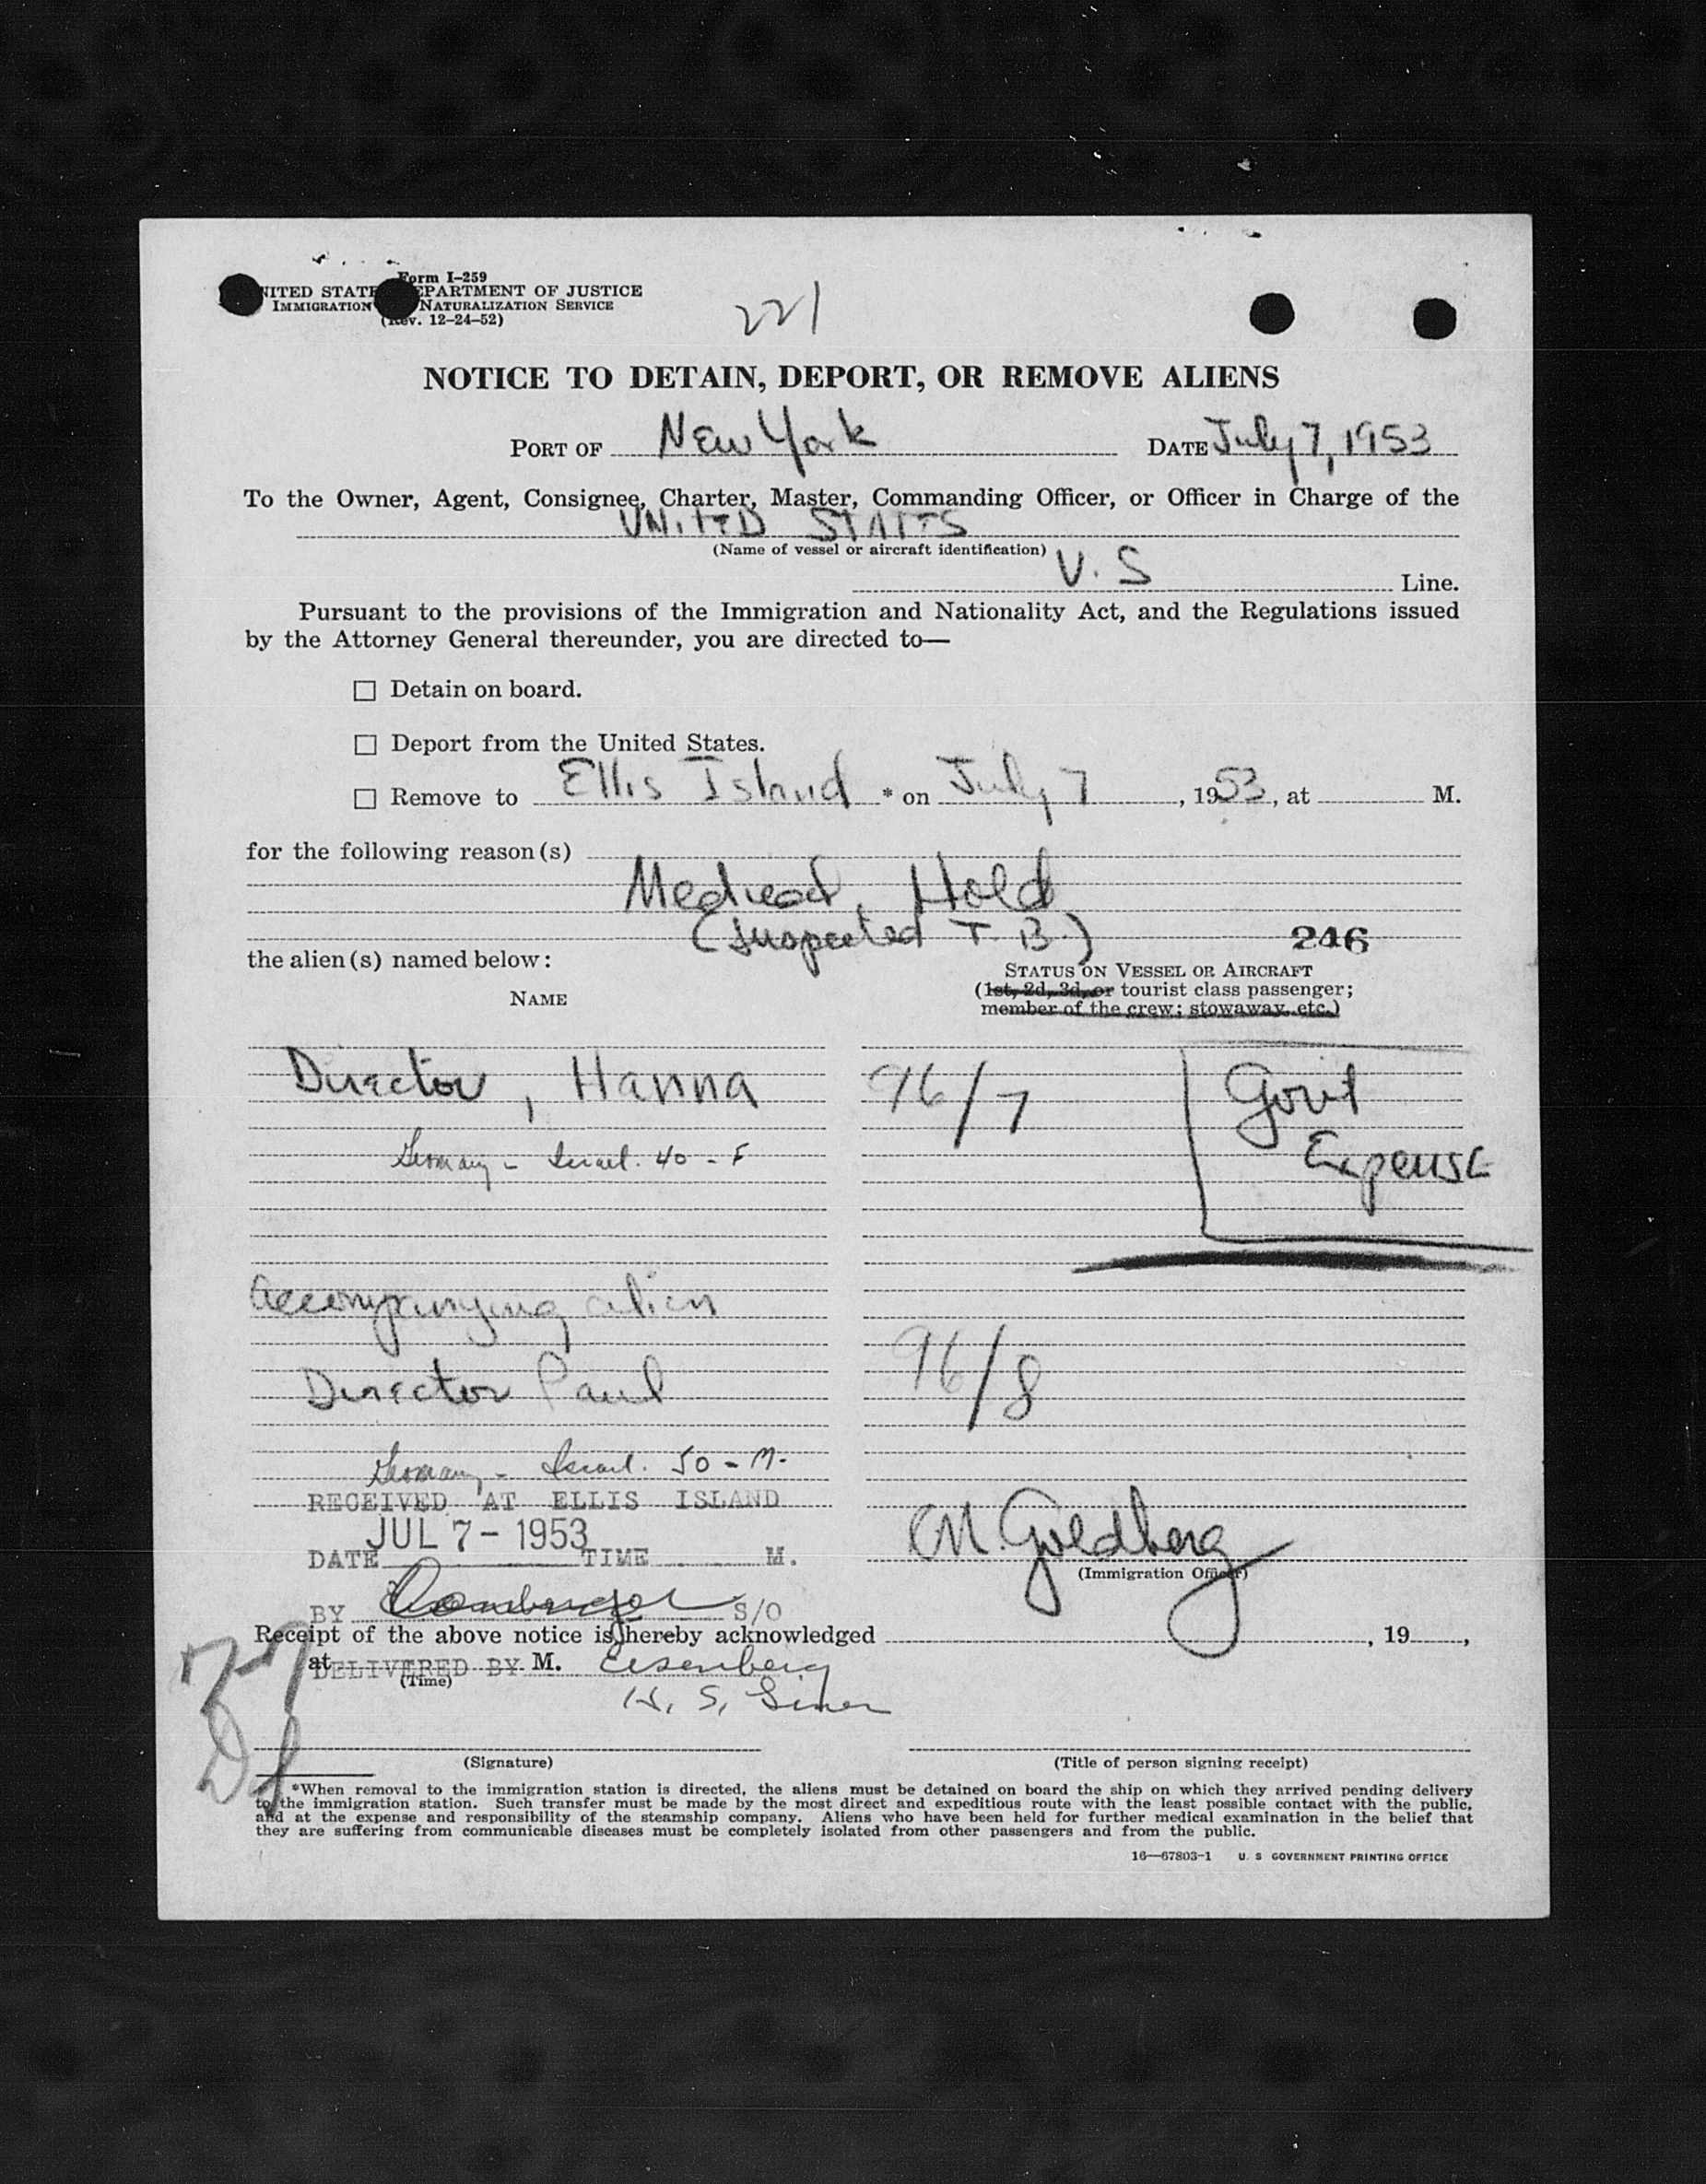 Form I-259
UNITED STATES DEPARTMENT OF JUSTICE
IMMIGRATION NATURALIZATION SERVICE
(Rev. 12-24-52)
221
NOTICE TO DETAIN, DEPORT, OR REMOVE ALIENS
PORT OF New York DATE July 7, 1953
To the Owner, Agent, Consignee, Charter, Master, Commanding Officer, or Officer in Charge of the
UNITED STATES
(Name of vessel or aircraft identification)
U.S Line.
Pursuant to the provisions of the Immigration and Nationality Act, and the Regulations issued
by the Attorney General thereunder, you are directed to—
☐ Detain on board.
☐ Deport from the United States.
☐ Remove to Ellis Island * on July 7, 1953, at M.
for the following reason(s)
Medical Hold
(Suspected T.B.)
246
the alien(s) named below:
STATUS ON VESSEL OR AIRCRAFT
(1st, 2d, 3d, or tourist class passenger;
member of the crew; stowaway, etc.)
NAME
Director, Hanna 96/7 Govt
Expense
Germany - Israel. 40 - F
Accompanying alien
Director Paul 96/8
Germany - Israel. 50 - M.
RECEIVED AT ELLIS ISLAND
JUL 7 - 1953
DATE TIME M.
M. Goldberg
(Immigration Officer)
BY S/O
Receipt of the above notice is hereby acknowledged , 19 ,
at M.
(Time)
DELIVERED BY Eisenberg
7-7
(Signature) (Title of person signing receipt)
*When removal to the immigration station is directed, the aliens must be detained on board the ship on which they arrived pending delivery
to the immigration station. Such transfer must be made by the most direct and expeditious route with the least possible contact with the public,
and at the expense and responsibility of the steamship company. Aliens who have been held for further medical examination in the belief that
they are suffering from communicable diseases must be completely isolated from other passengers and from the public.
16—67803-1 U. S GOVERNMENT PRINTING OFFICE